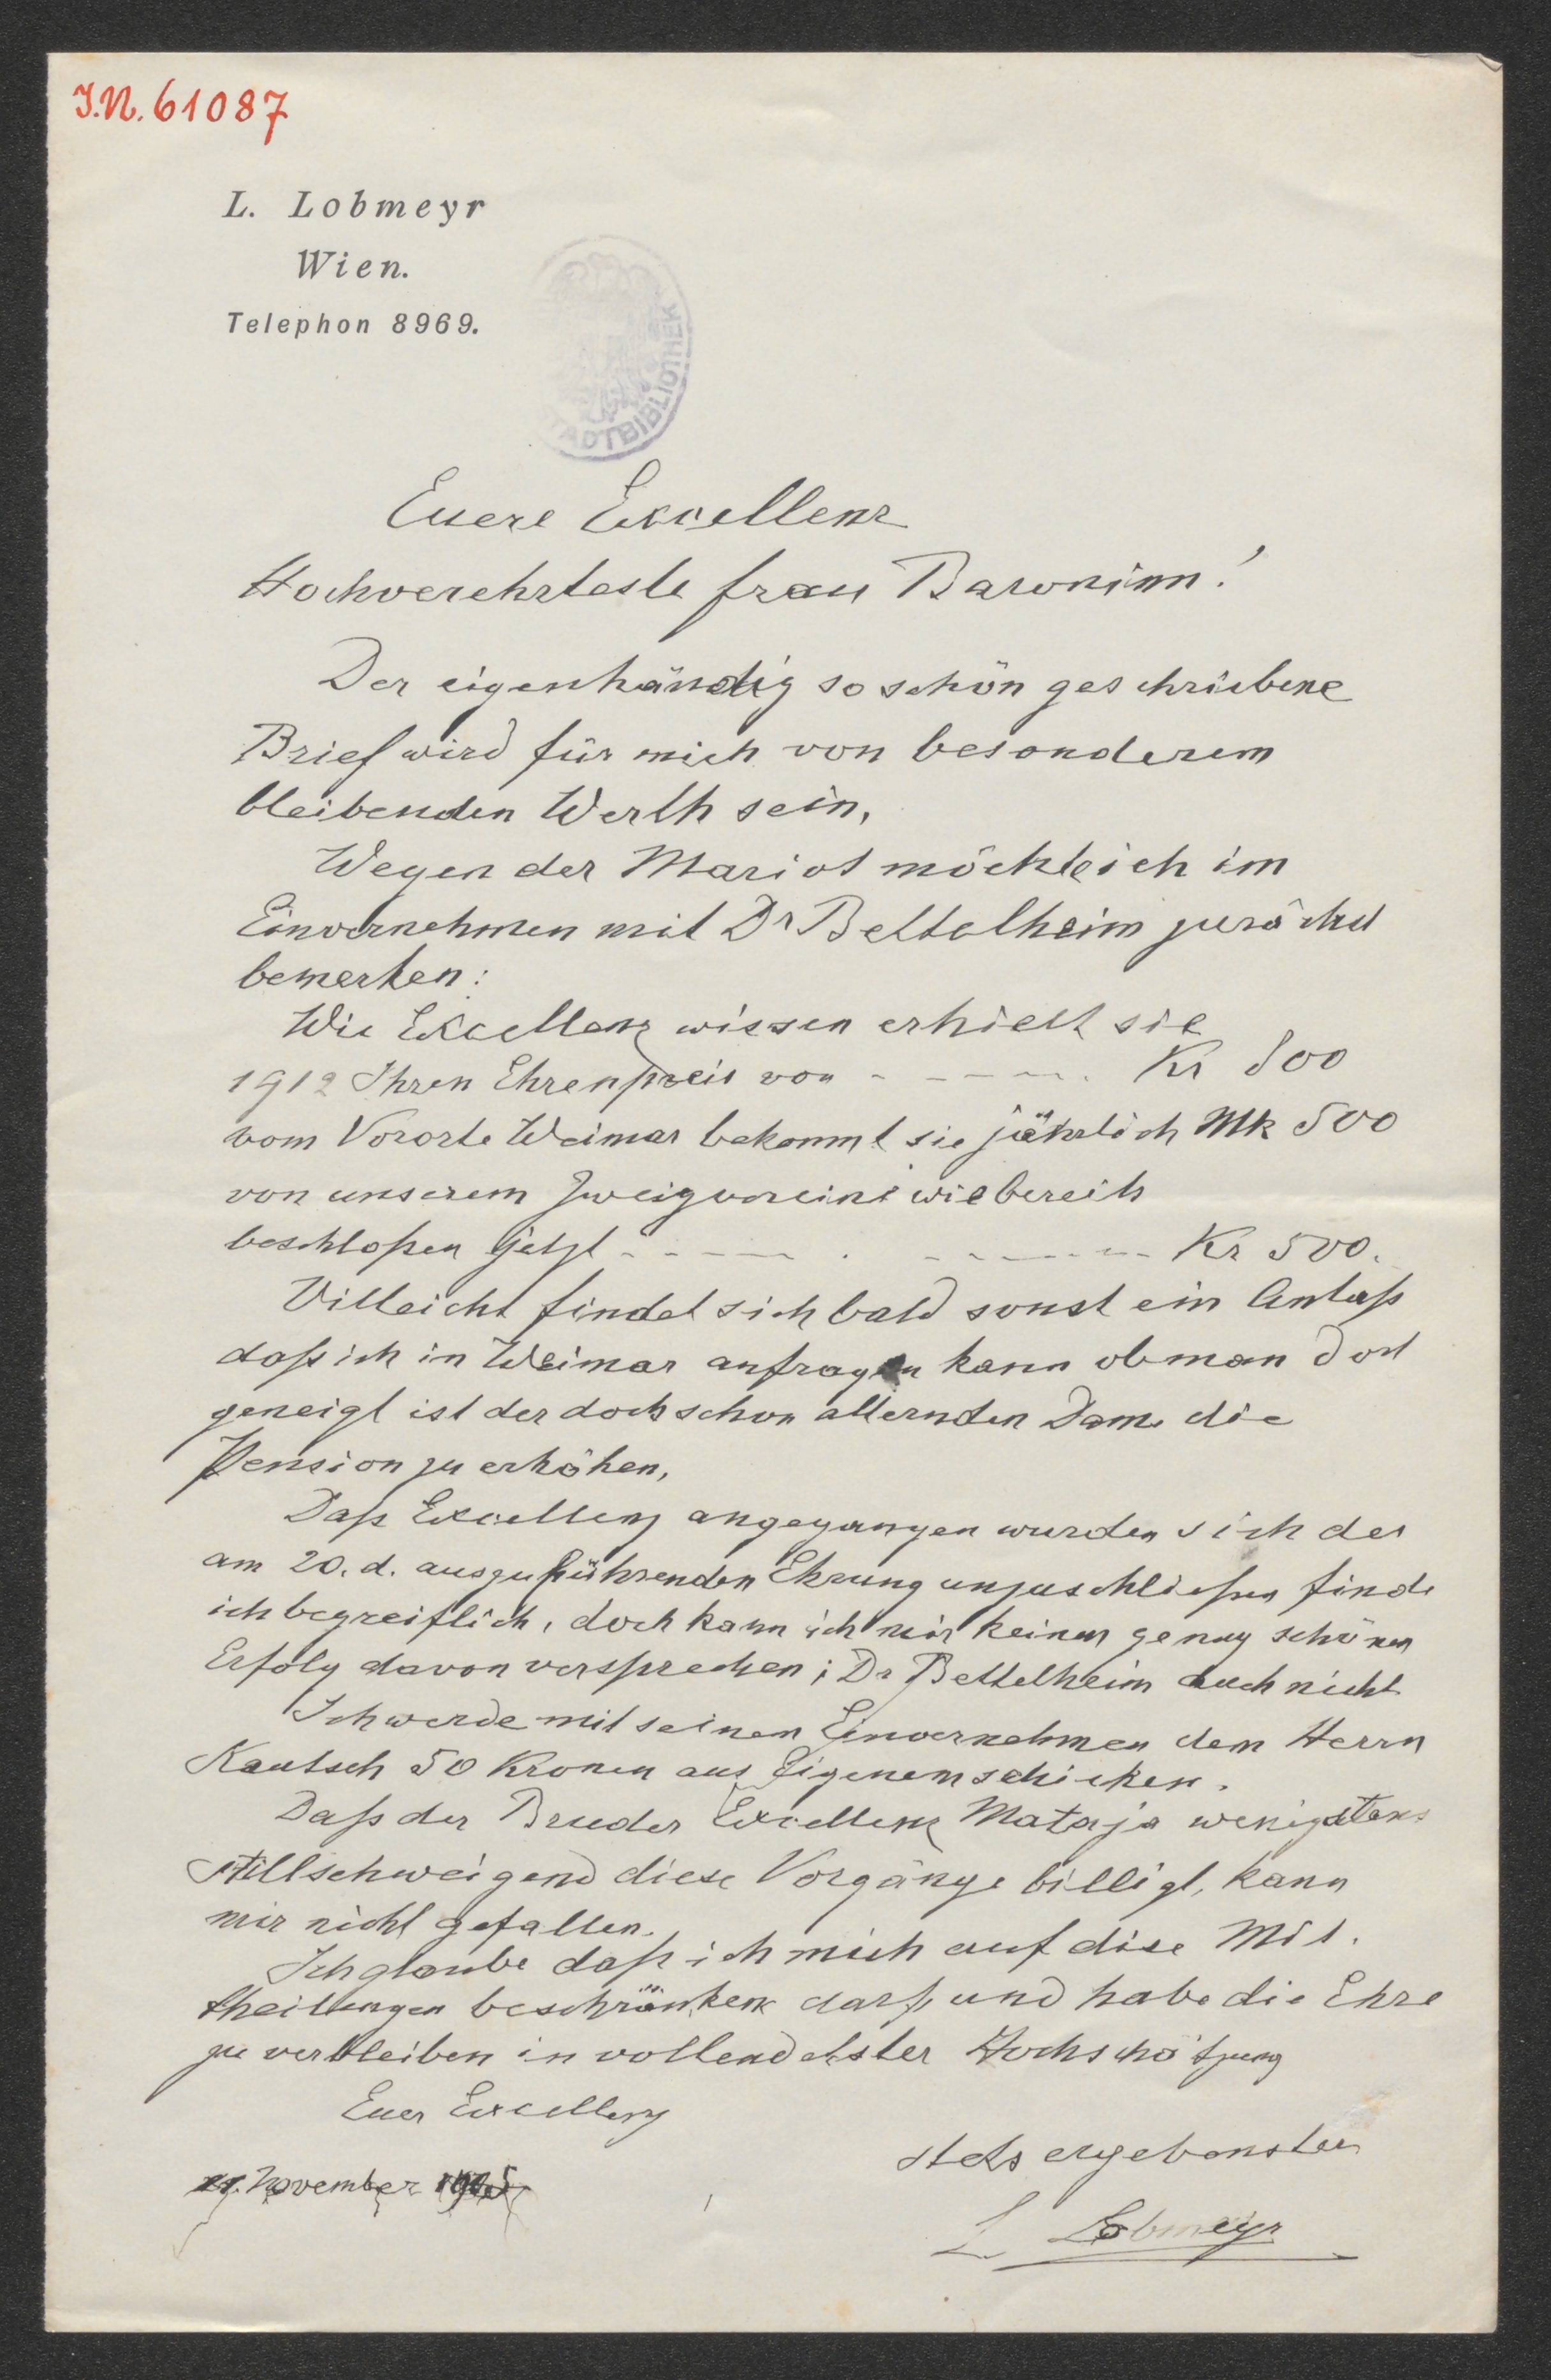 I.N. 61087
L. Lobmeyr
Wien.
Telephon 8969.
STADTBIBLIOTHEK
Euere Excellenz
Hochverehrteste Frau Baroninn!
Der eigenhändig so schön geschriebene
Brief wird für mich von besonderem
bleibenden Werth sein,
Wegen der Mariot möchte ich im
Einvernehmen mit Dr Bettelheim zunächst
bemerken:
Wie Excellenz wissen erhielt sie
1912 Ihren Ehrenpreis von - - - - - Kr 800
vom Vororte Weimar bekommt sie jährlich Mk 500
von unserem Zweigvereine wie bereits
beschloßen jetzt - - - - - - - - - Kr 500.
Villeicht findet sich bald sonst ein Anlaß
daß ich in Weimar anfragen kann ob man dort
geneigt ist der doch schon alternden Dame die
Pension zu erhöhen,
Daß Excellenz angegangen wurden sich der
am 20. d. auszuführenden Ehrung anzuschließen finde
ich begreiflich, doch kann ich mir keinen genug schönen
Erfolg davon versprechen; Dr Bettelheim auch nicht
Ich werde mit seinem Einvernehmen dem Herrn
Kautsch 50 Kronen aus Eigenem schicken.
Daß der Bruder Excellenz Mataja wenigstens
stillschweigend diese Vorgänge billigt, kann
mir nicht gefallen.
Ich glaube daß ich mich auf dise Mit-
theilungen beschränken darf und habe die Ehre
zu verbleiben in vollendetster Hochschätzung
Euer Excellenz
stets ergebenster
November
L Lobmeyr